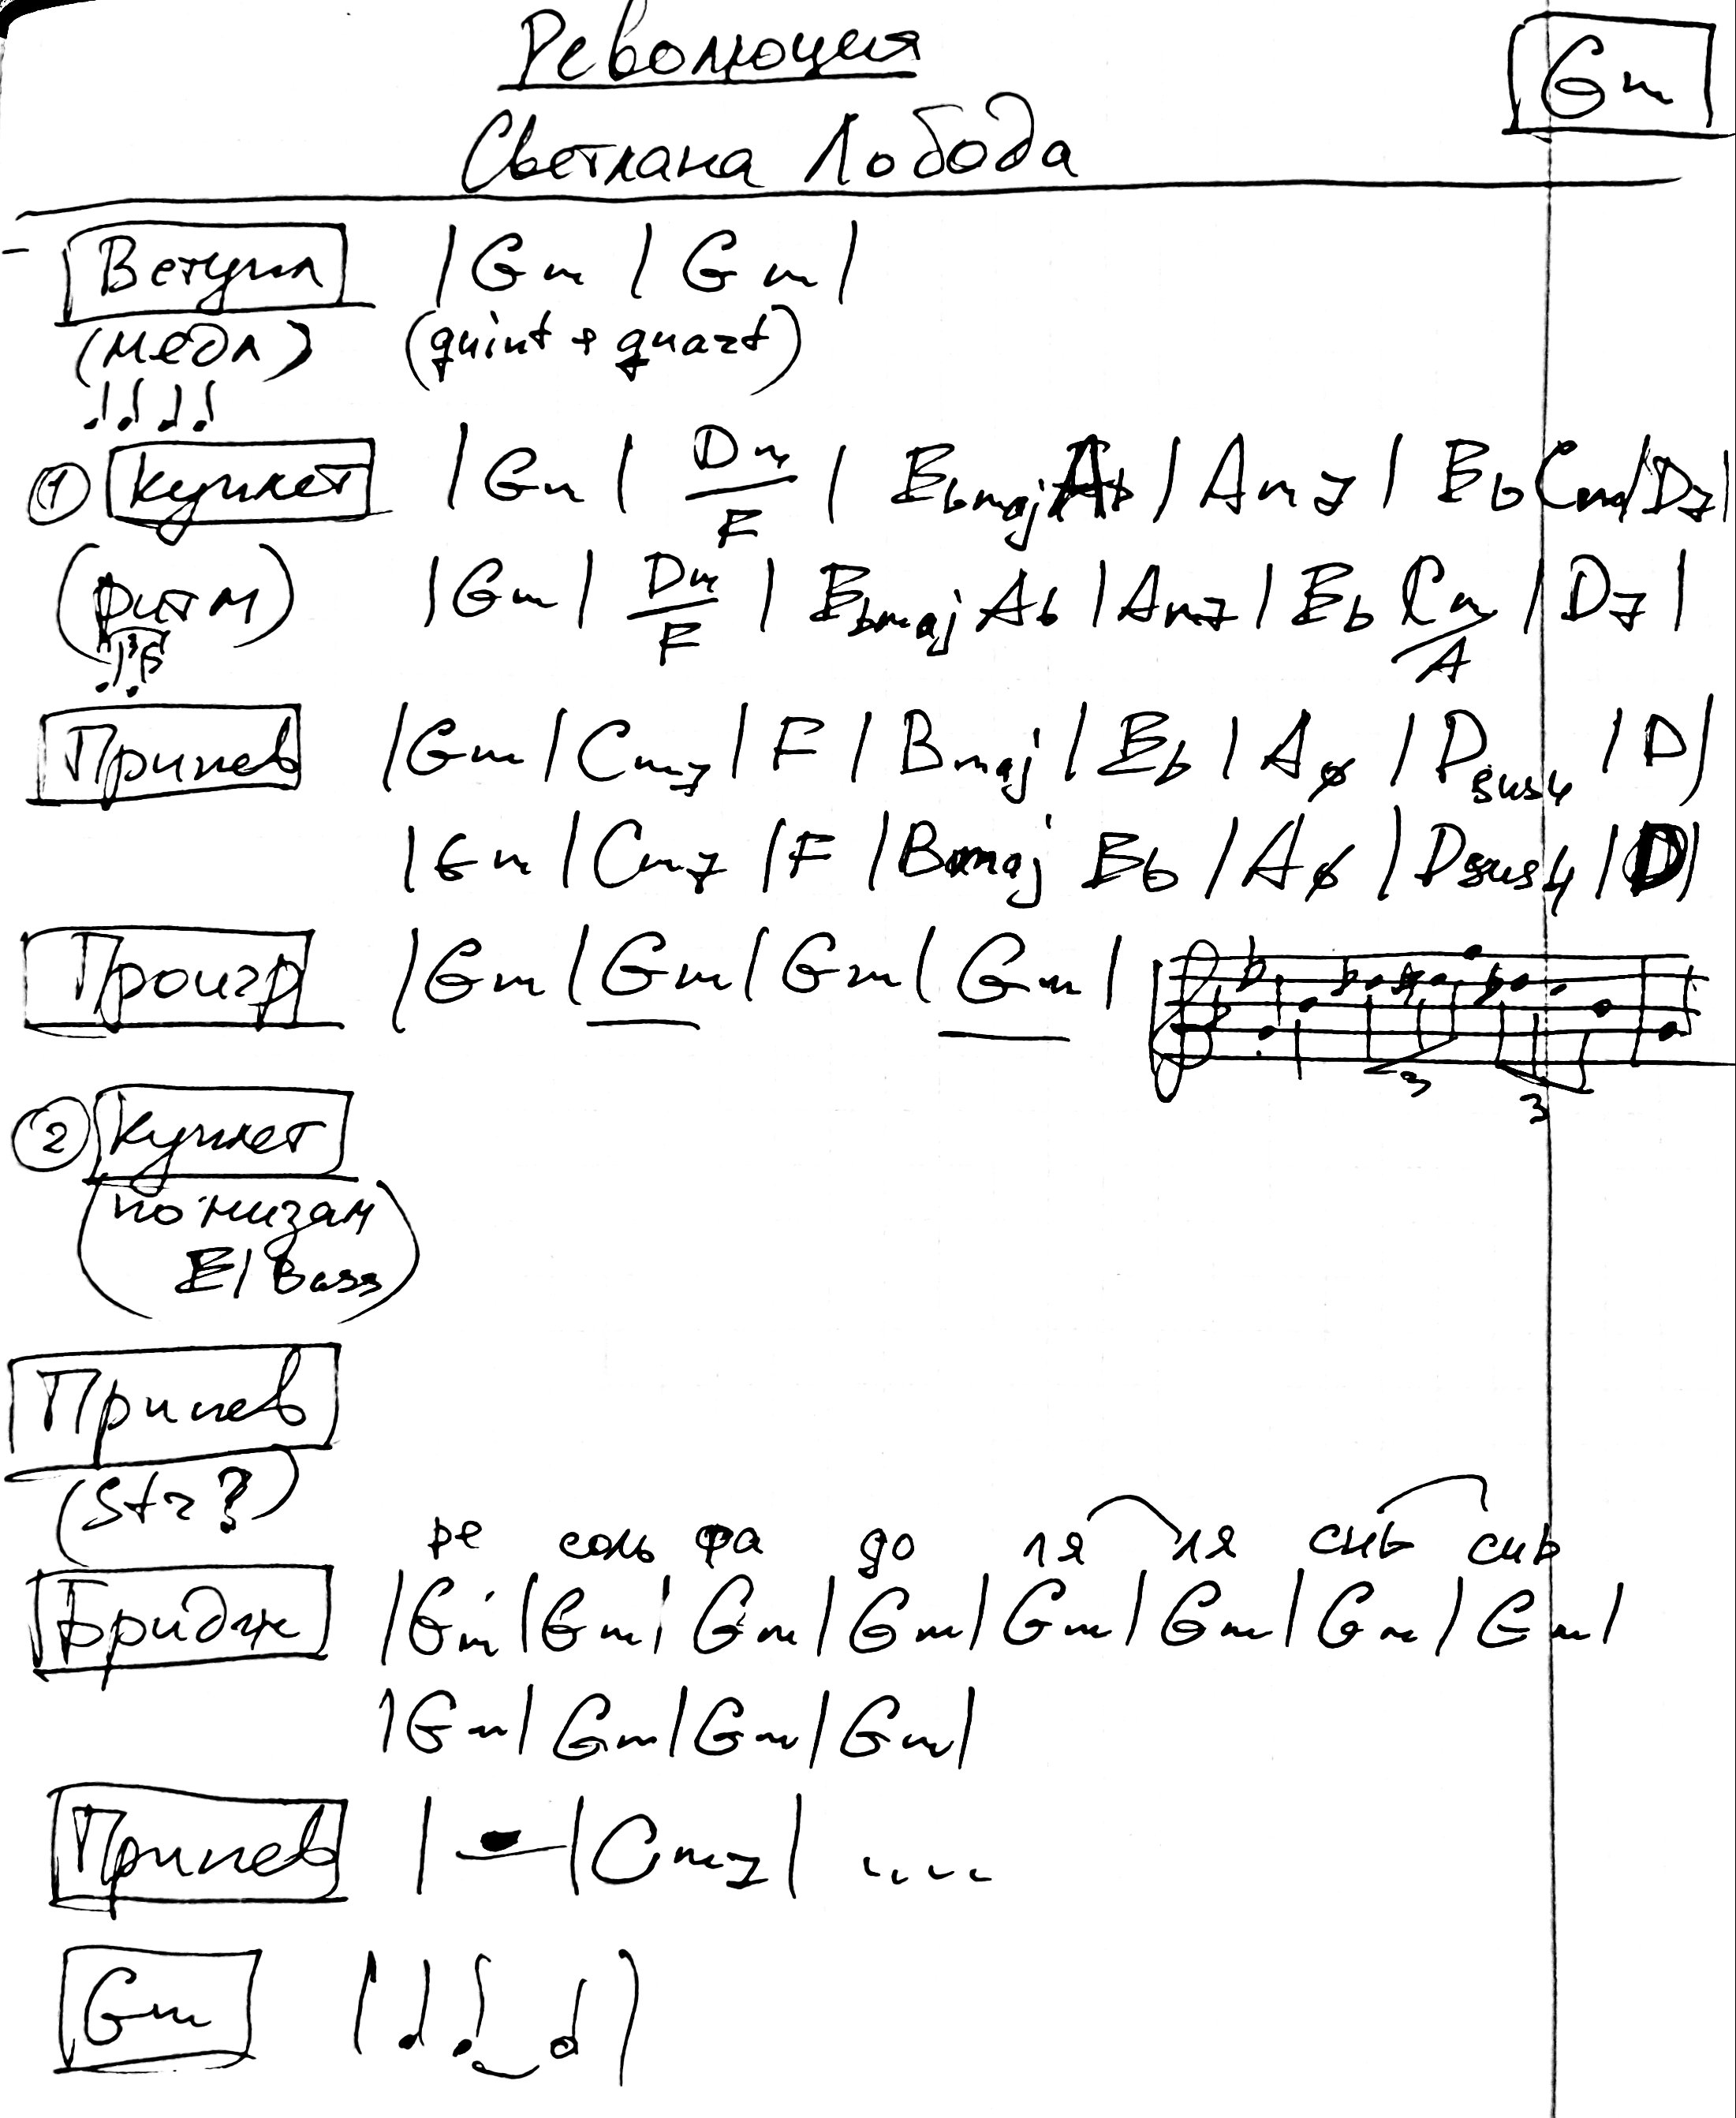 Революция
Gm
Светлана Лобода
Вступл |Gm | Gm|
(медл) (quint + quart)
① Куплет |Gm | Dm/F | Ebmaj Ab | Am7 | Eb Cm|D7|
(ритм) |Gm | Dm/F | Ebmaj Ab |Am7| Eb Cm/A | D7 |
Припев |Gm | Cm7 | F | Bmaj | Eb | Aø | Dsus4 | D|
|Gm | Cm7 | F | Bmaj Eb | Aø | Dsus4 | D|
Проигр |Gm | Gm | Gm | Gm |
3
3
② Куплет
(по низам
El Bass)
Припев
(Str?)
ре соль фа до ля ля сиь сиь
Бридж |Gm |Gm| Gm | Gm| Gm| Gm| Gm | Gm|
|Gm| Gm|Gm| Gm|
Припев | - |Cm7| ....
Gm